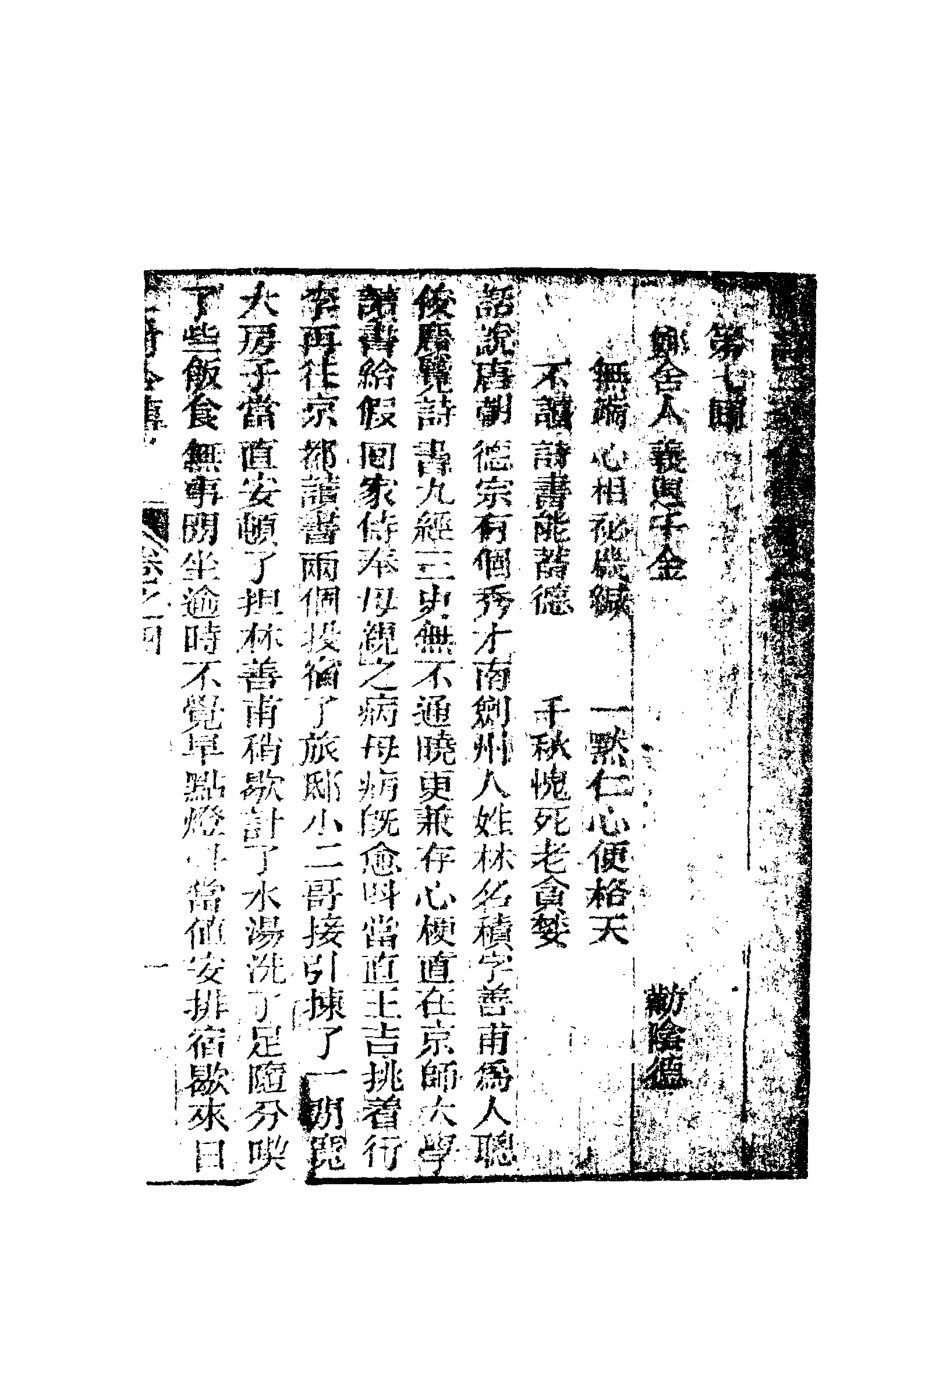 第七回
鄭舍人義還千金 勸陰德
無端心相祕幾緘 一點仁心便格天
不讀詩書能蓄德 千秋愧死老貪婪
話說唐朝德宗有個秀才南劍州人姓林名積字善甫爲人聰
俊廣覽詩書九經三史無不通曉更兼存心梗直在京師大學
讀書給假回家侍奉母親之病母病既愈呌當直王吉挑着行
李再往京都讀書兩個投宿了旅邸小二哥接引揀了一間寬
大房子當直安頓了担林善甫稍歇訖了水湯洗了足隨分喫
了些飯食無事閑坐逾時不覺早點燈呌當値安排宿歇來日
卷之四 一